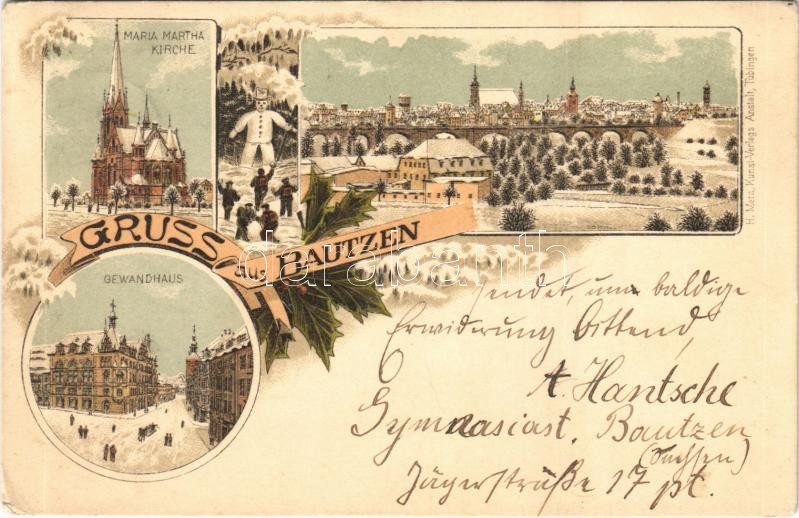 MARIA MARTHA
KIRCHE
GRUSS aus BAUTZEN
GEWANDHAUS
H. Merz, Kunst-Verlags Anstalt, Tübingen
darabanth
sendet, um baldige
Erwiderung bittend,
A. Hantsche
Gymnasiast, Bautzen
(Sachsen)
Jägerstraße 17 pt.